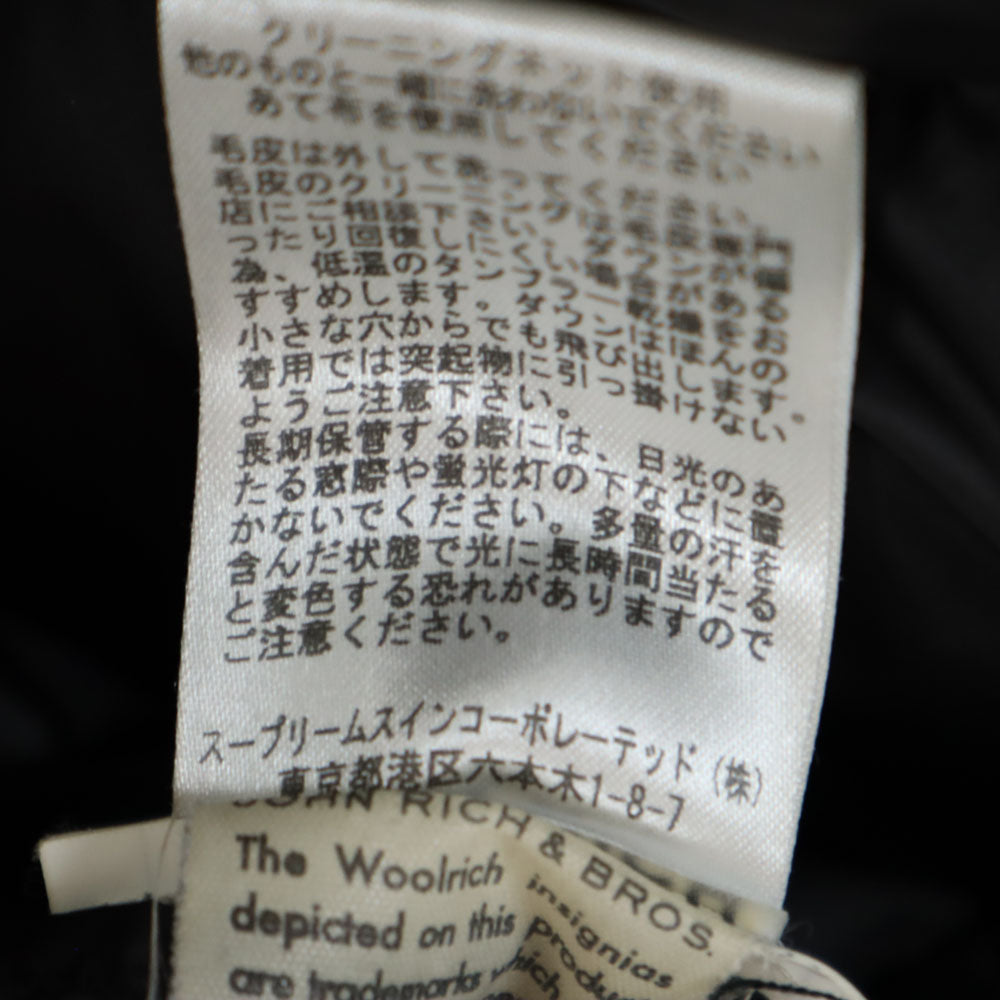 クリーニングネット使用
他のものと一緒に洗わないでください
あて布を使用してください
毛皮は外して洗ってください。
毛皮のクリーニングは毛皮専門
店にご相談下さい。ダウンが偏
ったり回復しにくい場合があるの
為、低温のタンブラー乾燥をお
すすめします。ダウンは ほんの
小さな穴からでも飛び出しますので
着用では突起物に引っ掛けない
ようご注意下さい。
長期保管する際には、日光のあ
たる窓際や蛍光灯の下などに置
かないでください。多量の汗を
含んだ状態で光に長時間当たる
と変色する恐れがありますので
ご注意ください。
スープリームスインコーポレーテッド（株）
東京都港区六本木1-8-7
JOHN RICH & BROS.
The Woolrich insignias
depicted on this product
are trademarks which